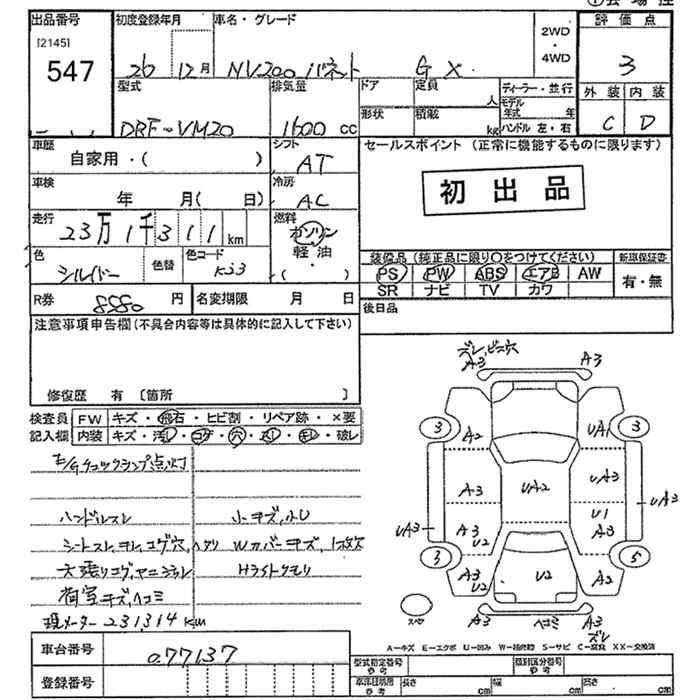 出品番号
[2145]
547
初度登録年月
26 12月
車名・グレード
NV200 バネット GX
2WD
・
4WD
評価点
3
外装 内装
C D
型式
DBF-VM20
排気量
1600 cc
ドア
形状
定員
人
積載
kg
ディーラー・並行
モデル
年式 年
ハンドル 左・右
車歴
自家用・( )
シフト
AT
車検
年 月( 日)
冷房
AC
走行
23万1千311km
燃料
ガソリン
軽油
・( )
色
シルバー
色替
色コード
K23
セールスポイント (正常に機能するものに限ります)
初出品
装備品 (純正品に限り○をつけてください)
PS PW ABS エアB AW
SR ナビ TV カワ
新車保証書
有・無
R券 8880 円
名変期限 月 日
後日品
注意事項申告欄(不具合内容等は具体的に記入して下さい)
修復歴 有 〔箇所 〕
検査員
記入欄
FW キズ・飛石・ヒビ割・リペア跡・×要
内装 キズ・汚レ・コゲ・穴・スレ・キレ・破レ
エ/チェックランプ点灯
ハンドルスレ
小キズ、凹
シートスレ、キレ、コゲ穴、ヘタリ
Wカバーキズ、1欠
天張りコゲ、ヤニシミ
Hライトクモリ
荷室キズ、ヘコミ
現メーター 231314 km
ズレ、ビス穴
A3 A3
3 3
A2 UA1
A3 UA2 UA3
UA3 UA3
A3 U2 U1 A3
3 5
A3 U2 U2 A2
スペア
A3 ヘコミ A3
ズレ
A-キズ E-エクボ U-凹み W-補修跡 S-サビ C-腐食 XX-交換済
車台番号
077137
登録番号
型式指定番号
参考
類別区分番号
参考
車体証明用
参考
長さ cm
幅 cm
高さ cm